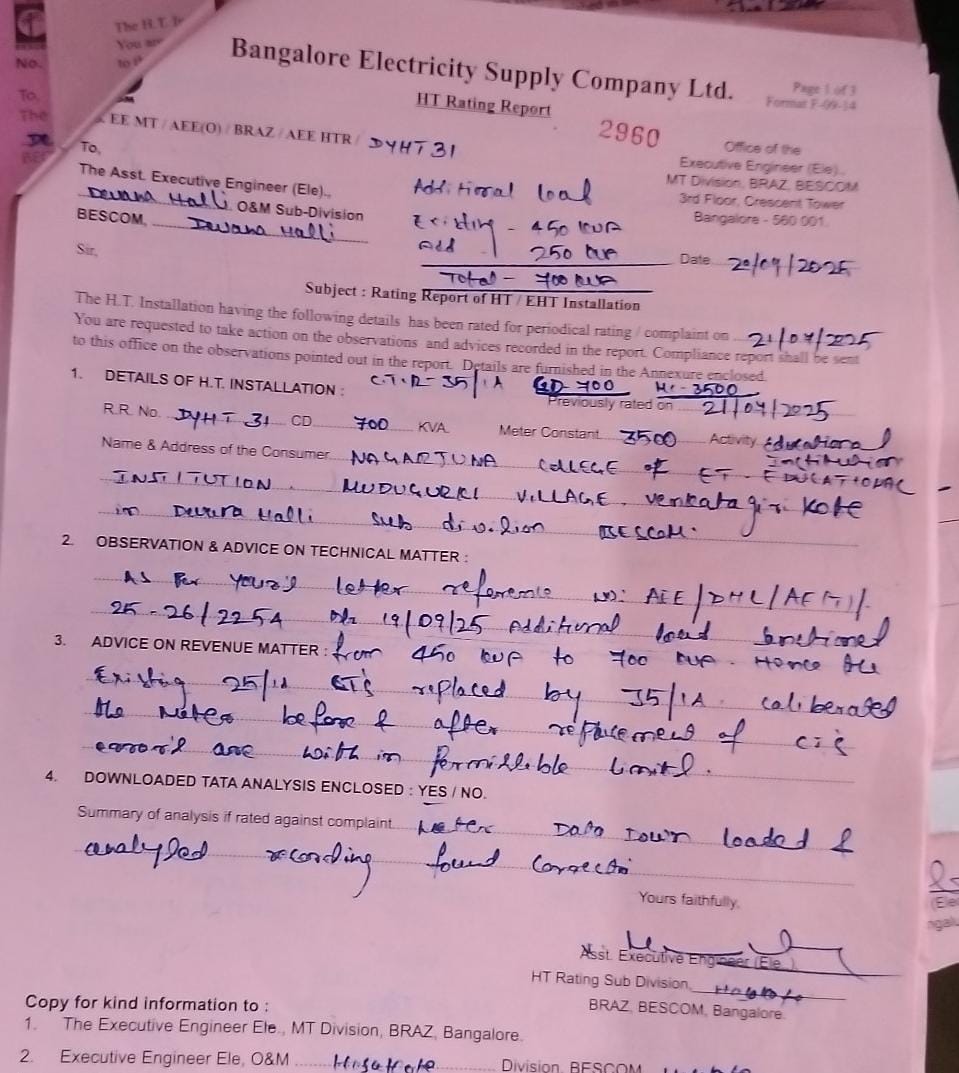 The H.T. In
You are
to th
No.
To,
The
Bangalore Electricity Supply Company Ltd.
Page 1 of 3
HT Rating Report
Format F-09-14
EE MT / AEE(O) / BRAZ / AEE HTR / DYHT31
2960
To,
Office of the
The Asst. Executive Engineer (Ele).,
Executive Engineer (Ele).,
Devana Halli O&M Sub-Division
MT Division, BRAZ, BESCOM
BESCOM, Devana Halli
3rd Floor, Crescent Tower
Bangalore - 560 001.
Additional load
Existing - 450 KVA
Add 250 KVA
Total - 700 KVA
Sir,
Date 20/09/2025
Subject : Rating Report of HT / EHT Installation
The H.T. Installation having the following details has been rated for periodical rating / complaint on 21/07/2025
You are requested to take action on the observations and advices recorded in the report. Compliance report shall be sent
to this office on the observations pointed out in the report. Details are furnished in the Annexure enclosed.
1. DETAILS OF H.T. INSTALLATION : C.T.R- 35/1A CD-700 MC-3500
Previously rated on 21/04/2025
R.R. No. DYHT 31 CD 700 KVA. Meter Constant 3500 Activity Educational Institution
Name & Address of the Consumer NAGARJUNA COLLEGE of ET. EDUCATIONAL
INSTITUTION. MUDUGURKI VILLAGE. Venkatagiri Kote
in Devana Halli Sub division BESCOM.
2. OBSERVATION & ADVICE ON TECHNICAL MATTER :
As Per your's letter reference no: AEE/DHL/AE(T)/
25-26/2254 Dt: 19/09/25 Additional load sanctioned
3. ADVICE ON REVENUE MATTER : from 450 KVA to 700 KVA. Hence the
Existing 25/1A CT's replaced by 35/1A. caliberated
the Meter before & after replacement of CT's
error's are with in Permissible limits.
4. DOWNLOADED TATA ANALYSIS ENCLOSED : YES / NO.
Summary of analysis if rated against complaint Meter Data Down loaded &
analysed recording found correct.
Yours faithfully,
Asst. Executive Engineer (Ele
HT Rating Sub Division,
BRAZ, BESCOM, Bangalore.
Copy for kind information to :
1. The Executive Engineer Ele., MT Division, BRAZ, Bangalore.
2. Executive Engineer Ele, O&M Hosakote Division, BESCOM